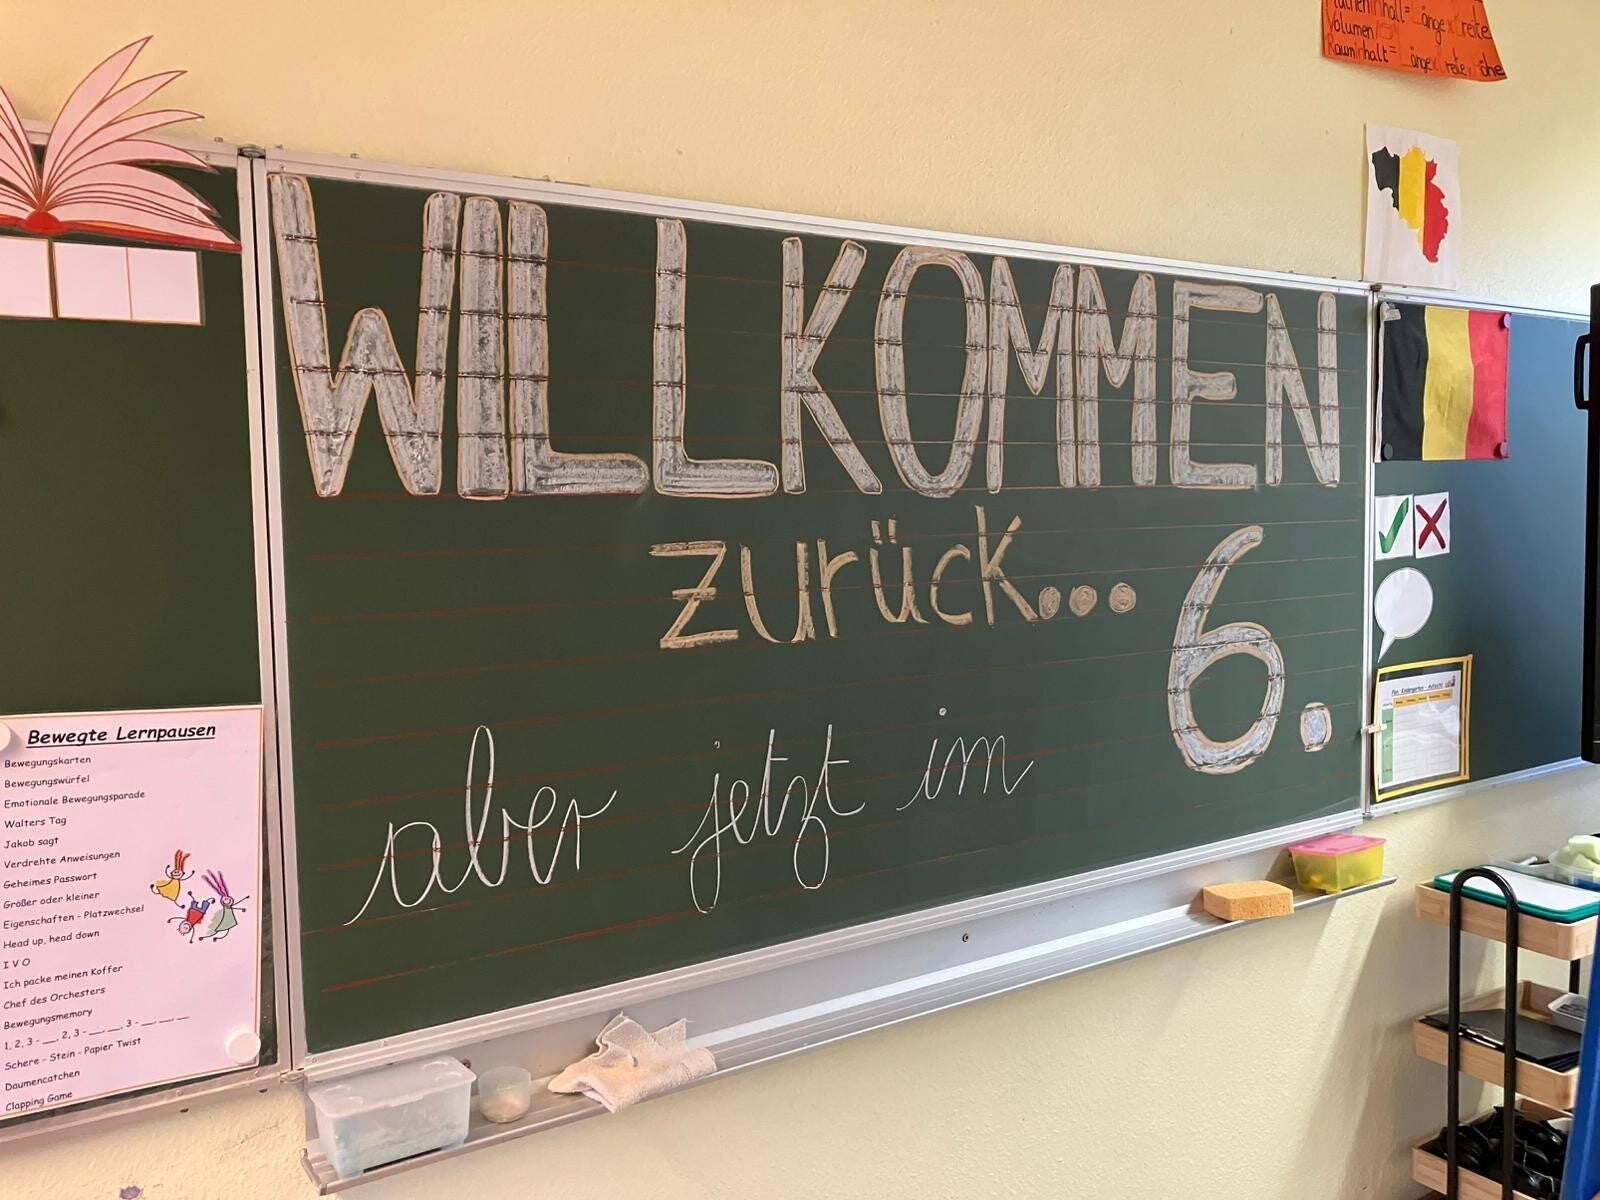 WILLKOMMEN
zurück...
aber jetzt im
6.
Bewegte Lernpausen
Bewegungskarten
Bewegungswürfel
Emotionale Bewegungsparade
Walters Tag
Jakob sagt
Verdrehte Anweisungen
Geheimes Passwort
Größer oder kleiner
Eigenschaften - Platzwechsel
Head up, head down
I V O
Ich packe meinen Koffer
Chef des Orchesters
Bewegungsmemory
1, 2, 3 - __, 2, 3 - __, __, 3 - __, __, __
Schere - Stein - Papier Twist
Daumencatchen
Clapping Game
Flächeninhalt = Länge x Breite
Volumen/
Rauminhalt = Länge x Breite x Höhe